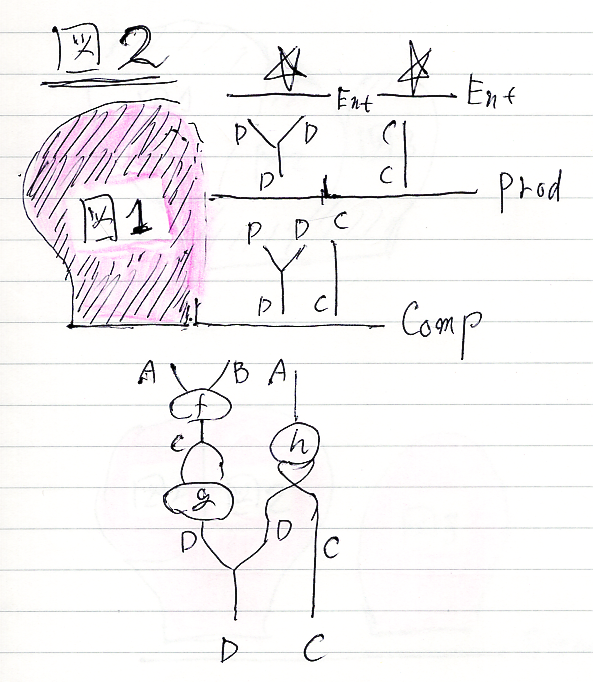 図2
☆ Ent ☆ Ent
D D C
D C
Prod
図1
D D C
D C
Comp
A B A
f
C h
g
D D C
D C